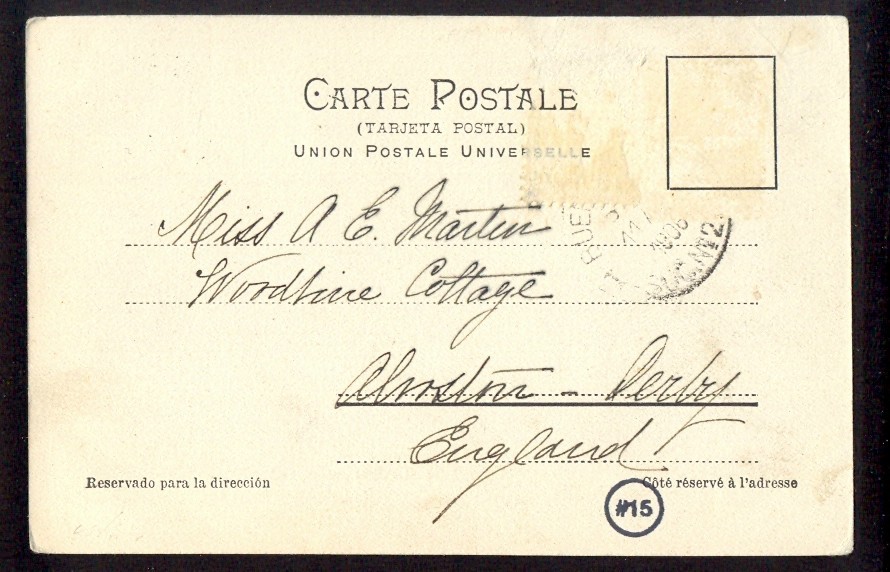 CARTE POSTALE
(TARJETA POSTAL)
UNION POSTALE UNIVERSELLE
Miss A E. Martin
Woodbine Cottage
Alvaston - Derby
England
Reservado para la dirección
Côté réservé à l'adresse
#15